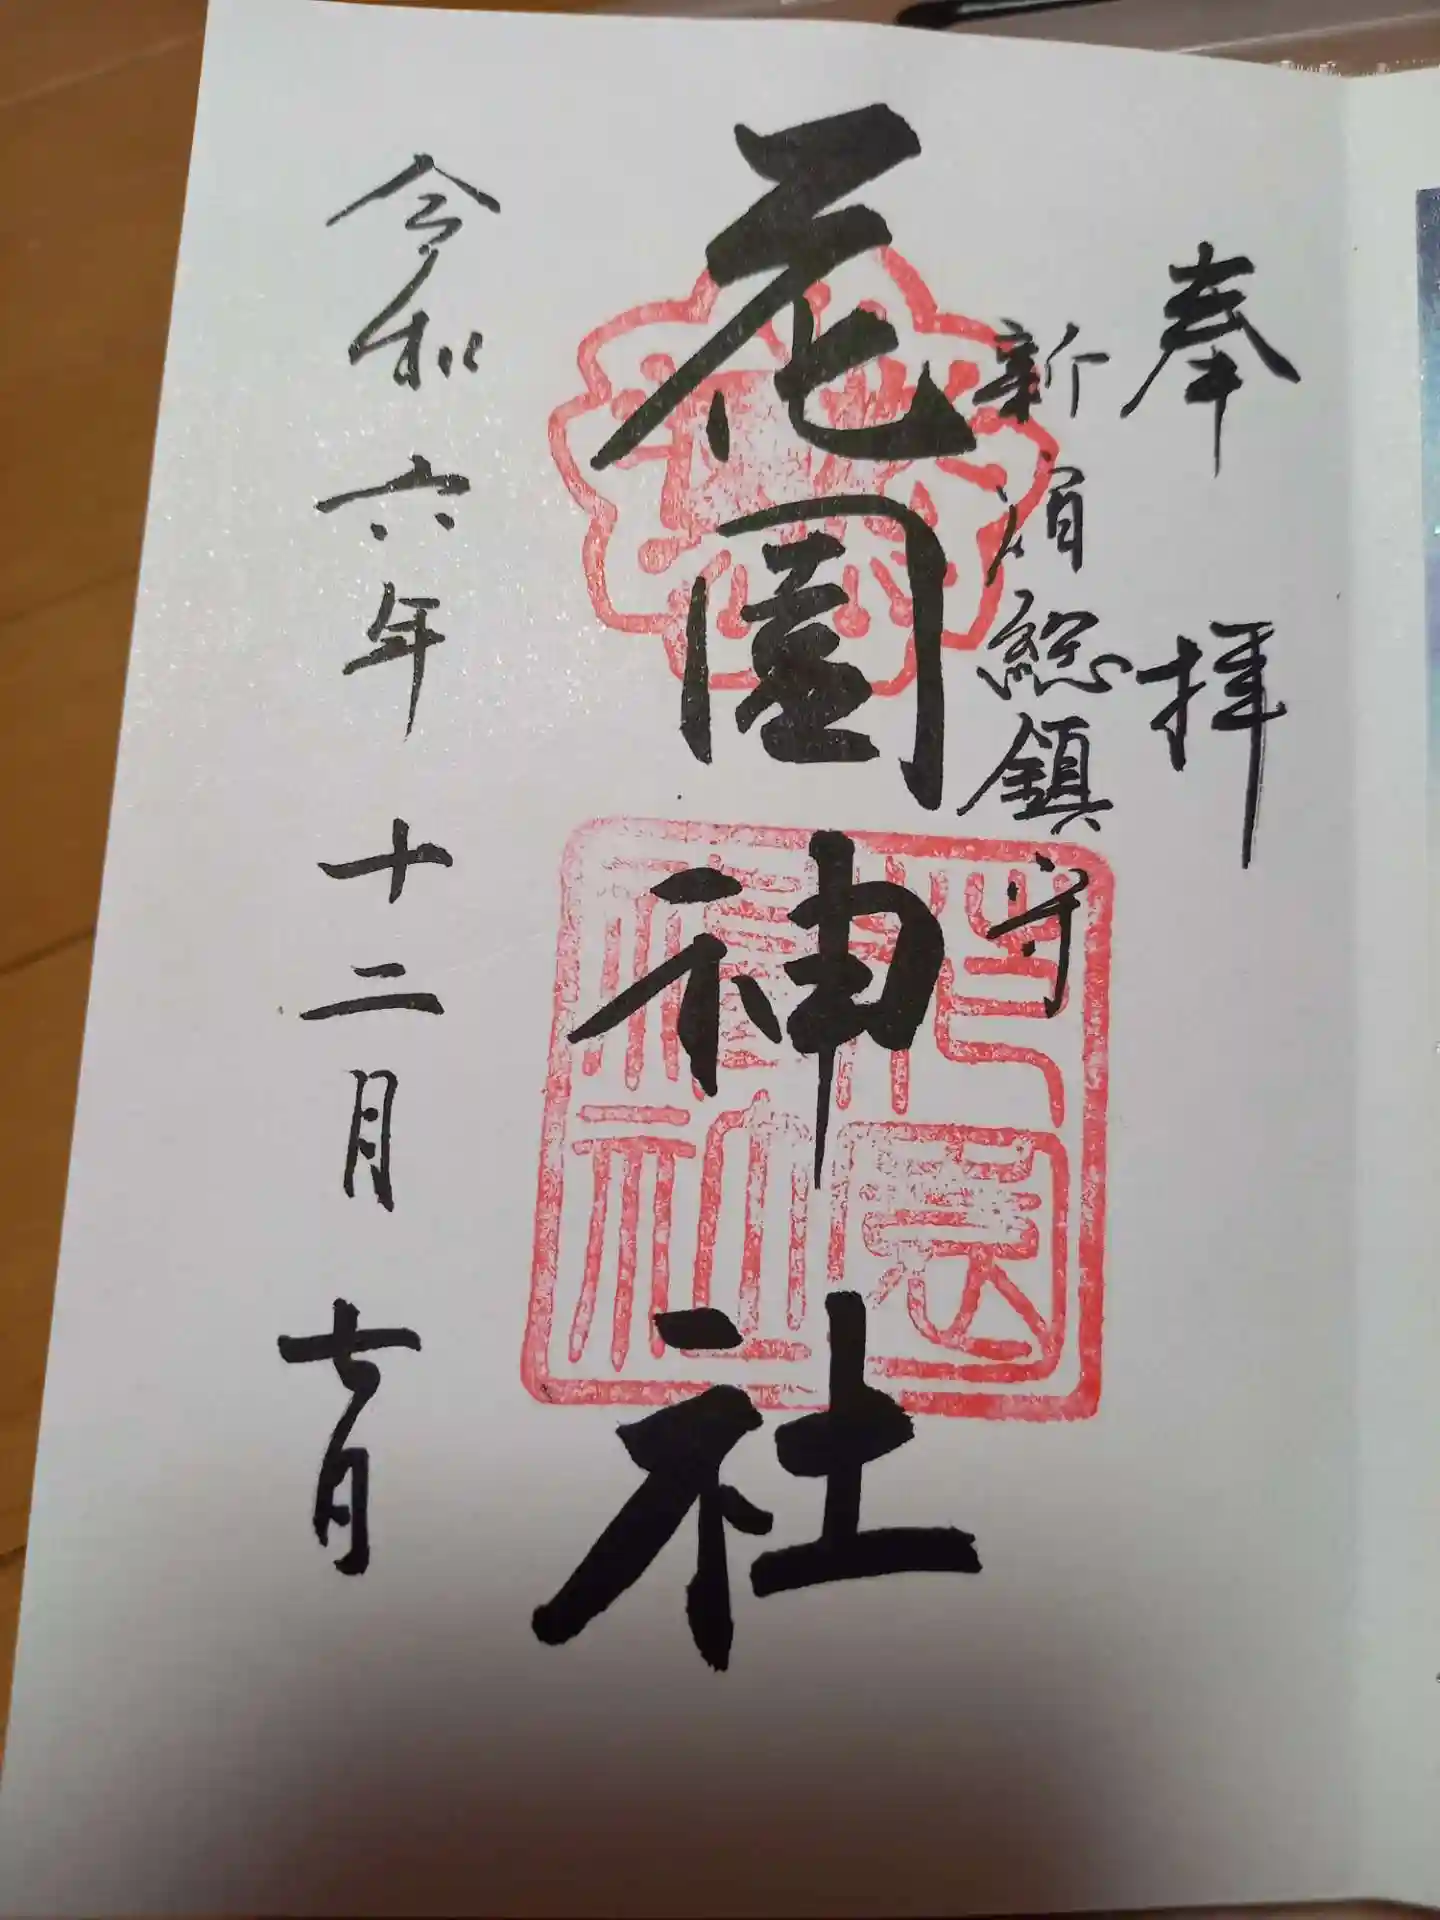 奉拝
新宿総鎮守
花園神社
花園神社
令和六年十二月七日